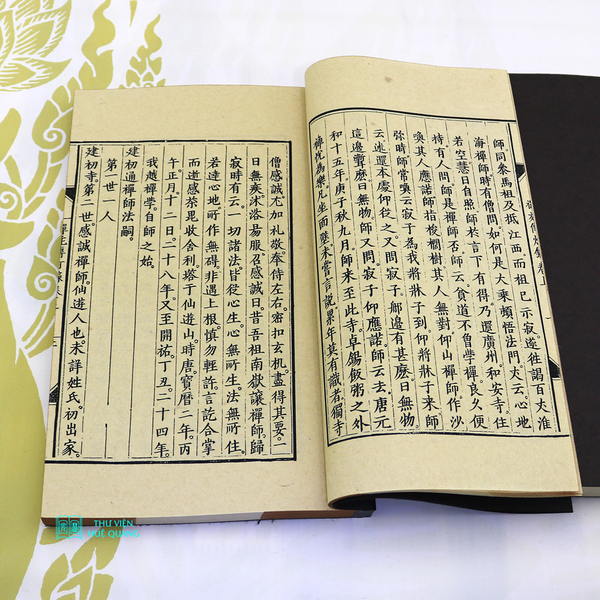 師同叅馬祖及抵江西而祖已示寂遂往謁百丈淮
海禪師時有僧問如何是大乘頓悟法門丈云心地
若空慧日自照師於言下有得乃還廣州和安寺住
持有人問師是禪師否師云貧道不曾學禪良久便
喚其人應諾師指椶櫚樹其人無對仰山禪師作沙
彌時師常喚云寂子爲我將牀子到仰將牀子來師
云送還本處仰從之又問寂子那邊有甚麽曰無物
這邊聻曰無物師又問寂子仰應諾師云去唐元
和十五年庚子秋九月師來至此寺卓錫飯粥之外
禪悅爲樂凡坐面壁未嘗言說累年莫有識者獨寺
僧感誠尤加礼敬奉侍左右密扣玄机盡得其要一
日無疾沐浴易服召感誠曰昔吾祖南嶽讓禪師歸
寂時有云一切諸法皆從心生心無所生法無所住
若達心地所作無碍非遇上根慎勿輕許言訖合掌
而逝感誠荼毘收舍利塔于仙逰山時唐寶曆二年丙
午正月十二日二十八年又至開祐丁丑二十四年
我越禪學自師之始
建初通禪師法嗣
第一世一人
建初寺第二世感誠禪師仙逰人也未詳姓氏初出家
THƯ VIỆN
HUỆ QUANG